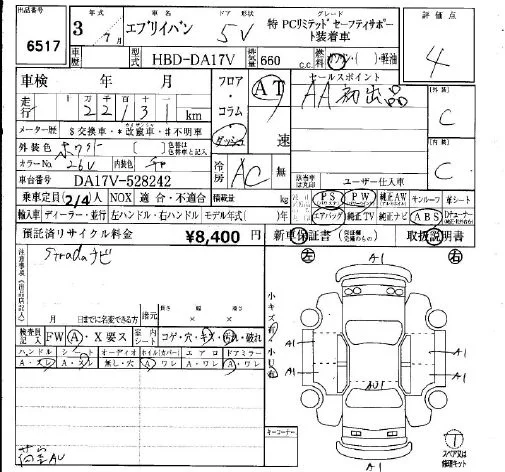 出品番号 6517
年式 3年 7月
エブリイバン
ドア 形状 5V
グレード 特 PCリミテッド セーフティサポート装着車
評価点 4
車歴
型式 HBD-DA17V
排気量 660 c.c.
燃料 ガソリン・( )・軽油
車検 年 月
フロア・コラム・ダッシュ
AT 速
セールスポイント
AA初出品
外装 C
内装 C
走行 22131 km
メーター歴 $交換車・*改竄車・#不明車
外装色 ホワイト 色替車は色替車と記入
カラーNo. 26V 内装色
車台番号 DA17V-528242
冷房 AC
ユーザー仕入車
乗車定員 2/4人 NOX 適合・不適合 積載量 kg
PS PW 純正AW サンルーフ 革シート
輸入車 ディーラー・並行 左ハンドル・右ハンドル モデル年式( )年
エアバッグ 純正TV 純正ナビ ABS
預託済リサイクル料金 ¥8,400 円
新車保証書 取扱説明書
注意事項
Stradaナビ
月 日までに名変できる方
諸元 長さ 幅 高さ × ×
検査員記入 FW A・X要ス
室内シート コゲ・穴・キズ・汚れ・破れ
ハンドル シート オーディオ ホイル(カバー) エアロ ドアミラー
A・スレ A・スレ 無し・穴 A・ワレ A・ワレ A・ワレ
AU
小キズ有
小凹有
キーコーナー
左 A1 右
A1 A1
A1 A1
AU1
A1
スペア又は修理キット